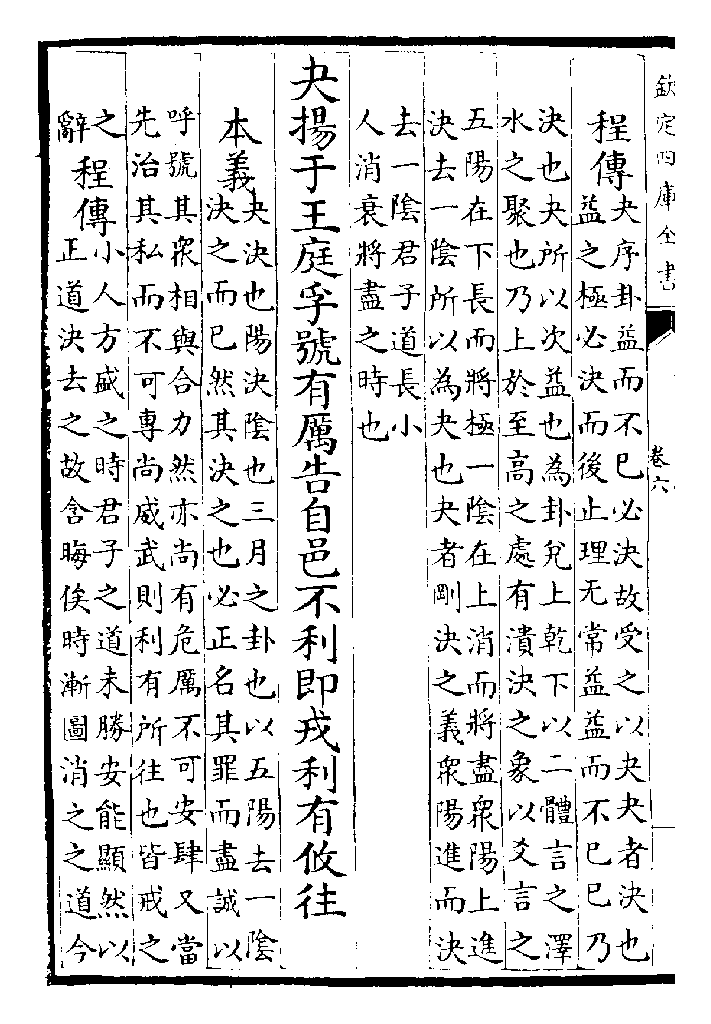 欽定四庫全書
卷六
程傳夬序卦益而不已必決故受之以夬夬者決也
益之極必決而後止理无常益益而不已已乃
決也夬所以次益也為卦兌上乾下以二體言之澤
水之聚也乃上於至高之處有潰決之象以爻言之
五陽在下長而將極一陰在上消而將盡衆陽上進
決去一陰所以為夬也夬者剛決之義衆陽進而決
去一陰君子道長小
人消衰將盡之時也
夬揚于王庭孚號有厲告自邑不利即戎利有攸往
本義夬決也陽決陰也三月之卦也以五陽去一陰
決之而已然其決之也必正名其罪而盡誠以
呼號其衆相與合力然亦尚有危厲不可安肆又當
先治其私而不可專尚威武則利有所往也皆戒之
之
辭
程傳小人方盛之時君子之道未勝安能顯然以
正道決去之故含晦俟時漸圖消之之道今